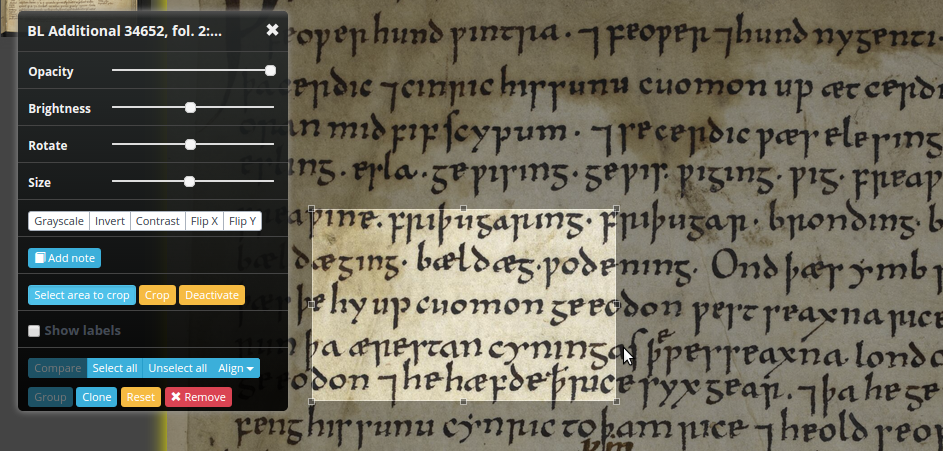 BL Additional 34652, fol. 2:...
Opacity
Brightness
Rotate
Size
Grayscale Invert Contrast Flip X Flip Y
Add note
Select area to crop Crop Deactivate
Show labels
Compare Select all Unselect all Align
Group Clone Reset Remove
feoƿerhund ƿintra · ⁊ feoƿer ⁊hund nygenti·
cerdic ⁊cinric hissunu cuomon up æt cerdi
oran mid fif scypum · ⁊secerdic ƿæs elesing
esling. esla. geƿising. geƿis. ƿiging. ƿig. freaƿ
eaƿine. friþugaring. friþugar. bronding. b
bældæging. bældæg. ƿodening. Ond þæs ymb
þe hy up cuomon geeodon ƿest seaxna rice
þa ærestan cyningas þe ƿesseaxna. lond
geeodon ⁊hehæfde þrice syx gear. ⁊þa he ge
feng hissunu cynric to þam rice ⁊ heold seof